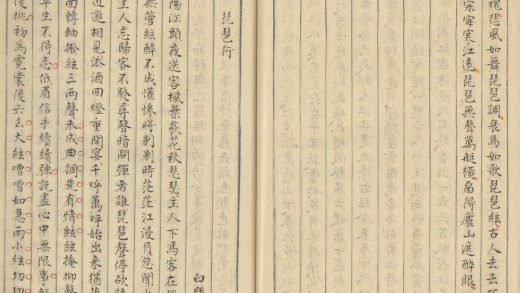 魂悲風如舞琵琶調哀馬如歌琵琶絃古人去去
寒江遠琵琶無聲萬艇橫得廬山遮醉眼
琵琶行
白
陽江頭夜送客楓葉荻花秋瑟瑟主人下馬客在
無管絃醉不成懽慘將別別時茫茫江浸月忽聞
主人忘歸客不發尋聲暗問彈者誰琵琶聲停欲
近邀相見添酒回燈重開宴千呼萬喚始出來猶
面轉軸撥絃三兩聲未成曲調先有情絃絃掩抑
平生不得志低眉信手續續彈說盡心中無限事
挑初為霓裳後六幺大絃嘈嘈如急雨小絃切切